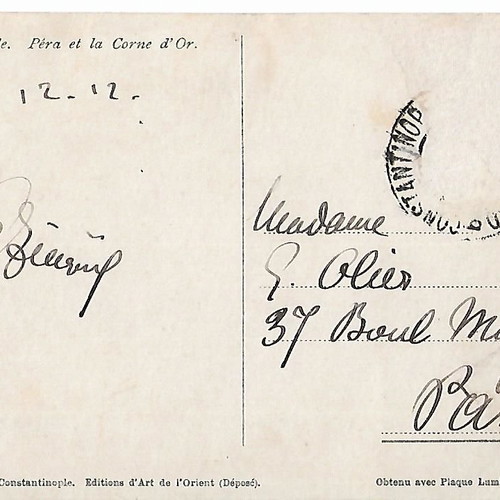 le. Péra et la Corne d'Or.
12-12.
Madame
E. Olier
37 Boul M
Pa
CONSTANTINOP
Constantinople. Editions d'Art de l'Orient (Déposé).
Obtenu avec Plaque Lum